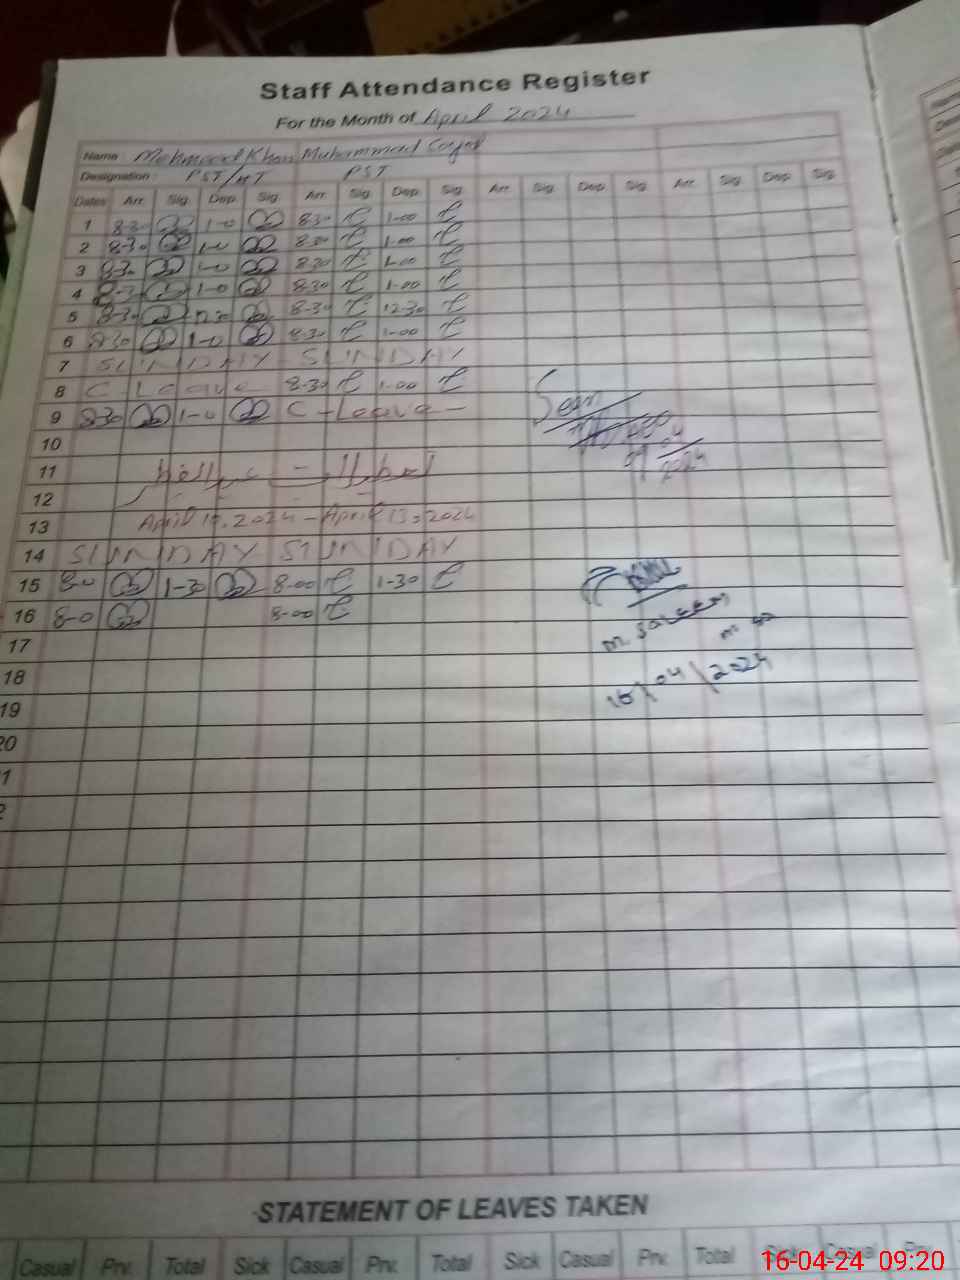 Staff Attendance Register
For the Month of April 2024
Name : Mehmood Khan Muhammad
Designation : PST/HT PST
Dates Arr. Sig. Dep. Sig. Arr. Sig. Dep. Sig. Arr. Sig. Dep. Sig. Arr. Sig. Dep. Sig.
1 8-30 1-0 8-30 1-00
2 8-30 1-0 8-30 1-00
3 8-30 1-0 8-30 1-00
4 8-30 1-0 8-30 1-00
5 8-30 12-30 8-30 12-30
6 8-30 1-0 8-30 1-00
7 SUNDAY - SUNDAY
8 C-Leave 8-30 1-00
9 8-30 1-0 C-Leave-
10
11
12
13 April 10, 2024 - April 13, 2024
14 SUNDAY SUNDAY
15 8-0 1-30 8-00 1-30
16 8-0 8-00
Seen
09 04
2024
M. SALEEM
16/04/2024
17
18
19
20
1
2
STATEMENT OF LEAVES TAKEN
Casual Prv. Total Sick Casual Prv. Total Sick Casual Prv. Total Sick Casual Prv.
16-04-24 09:20